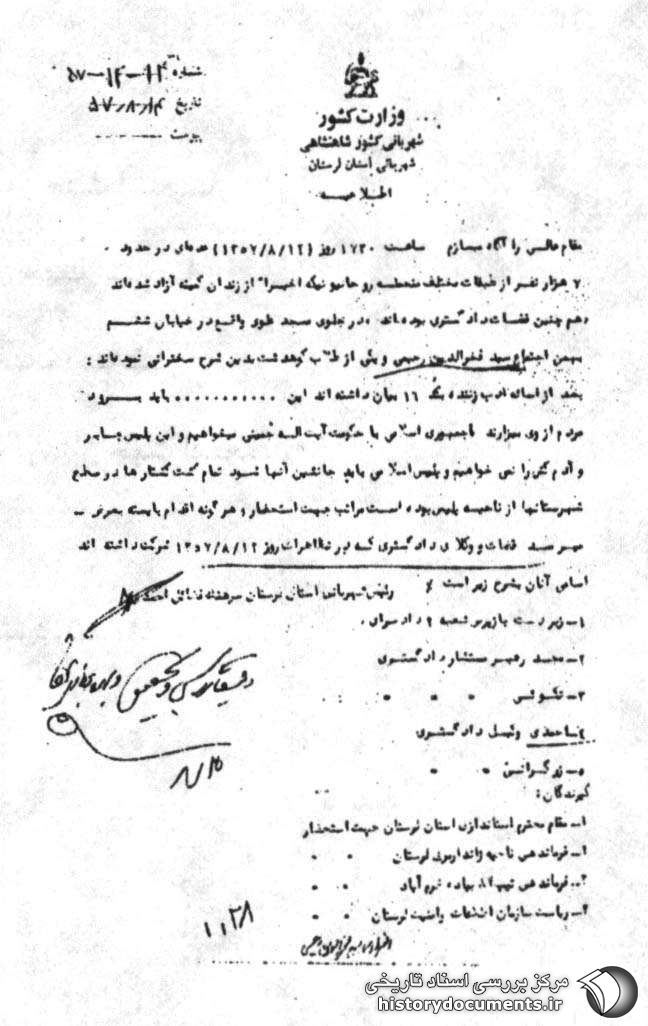 شماره ۱۴-۱۲-۵۷
تاریخ ۵۷/۸/۱۴
پیوست
وزارت کشور
شهربانی کشور شاهنشاهی
شهربانی استان لرستان
اطلاعیه
مقام عالی را آگاه میسازم ساعت ۱۷۳۰ روز (۱۳۵۷/۸/۱۲) عده‌ای در حدود
۷ هزار نفر از طبقات مختلف منجمله روحانیونیکه اخیرا" از زندان کمیته آزاد شده‌اند
و هم چنین قضات دادگستری بوده‌اند در جلوی مسجد علوی واقع در خیابان ششم
بهمن اجتماع سید فخرالدین رحیمی و یکی از طلاب کوهدشت بدین شرح سخنرانی نموده‌اند :
بعد از اسائه ادب زننده یک ۱۶ بیان داشته‌اند این ........... باید برود
مردم از وی بیزارند جمهوری اسلامی با حکومت آیت اله خمینی میخواهیم و این پلیس جابر
و آدم کش را نمی خواهیم و پلیس اسلامی باید جانشین آنها شود تمام کشت کشتارها در سطح
شهرستانها از ناحیه پلیس بوده است مراتب جهت استحضار و هر گونه اقدام بایسته بعرض
میرسد قضات و وکلای دادگستری که در تظاهرات روز ۱۳۵۷/۸/۱۲ شرکت داشته اند
اسامی آنان بشرح زیر است
رئیس شهربانی استان لرستان سرهنگ
۱- زبردست بازپرس شعبه ۲ دادسرای
۲- محمد رهبر مستشار دادگستری
۳-
۴- احمدی وکیل دادگستری
۵- زرگرانی " "
گیرندگان :
۱- مقام محترم استانداری استان لرستان جهت استحضار
۱- فرماندهی ناحیه ژاندارمری لرستان " "
۳- فرماندهی تیپ ۸۴ پیاده خرم آباد " "
۴- ریاست سازمان اطلاعات و امنیت لرستان " "
۱۱/۲۸
مرکز بررسی اسناد تاریخی
historydocuments.ir